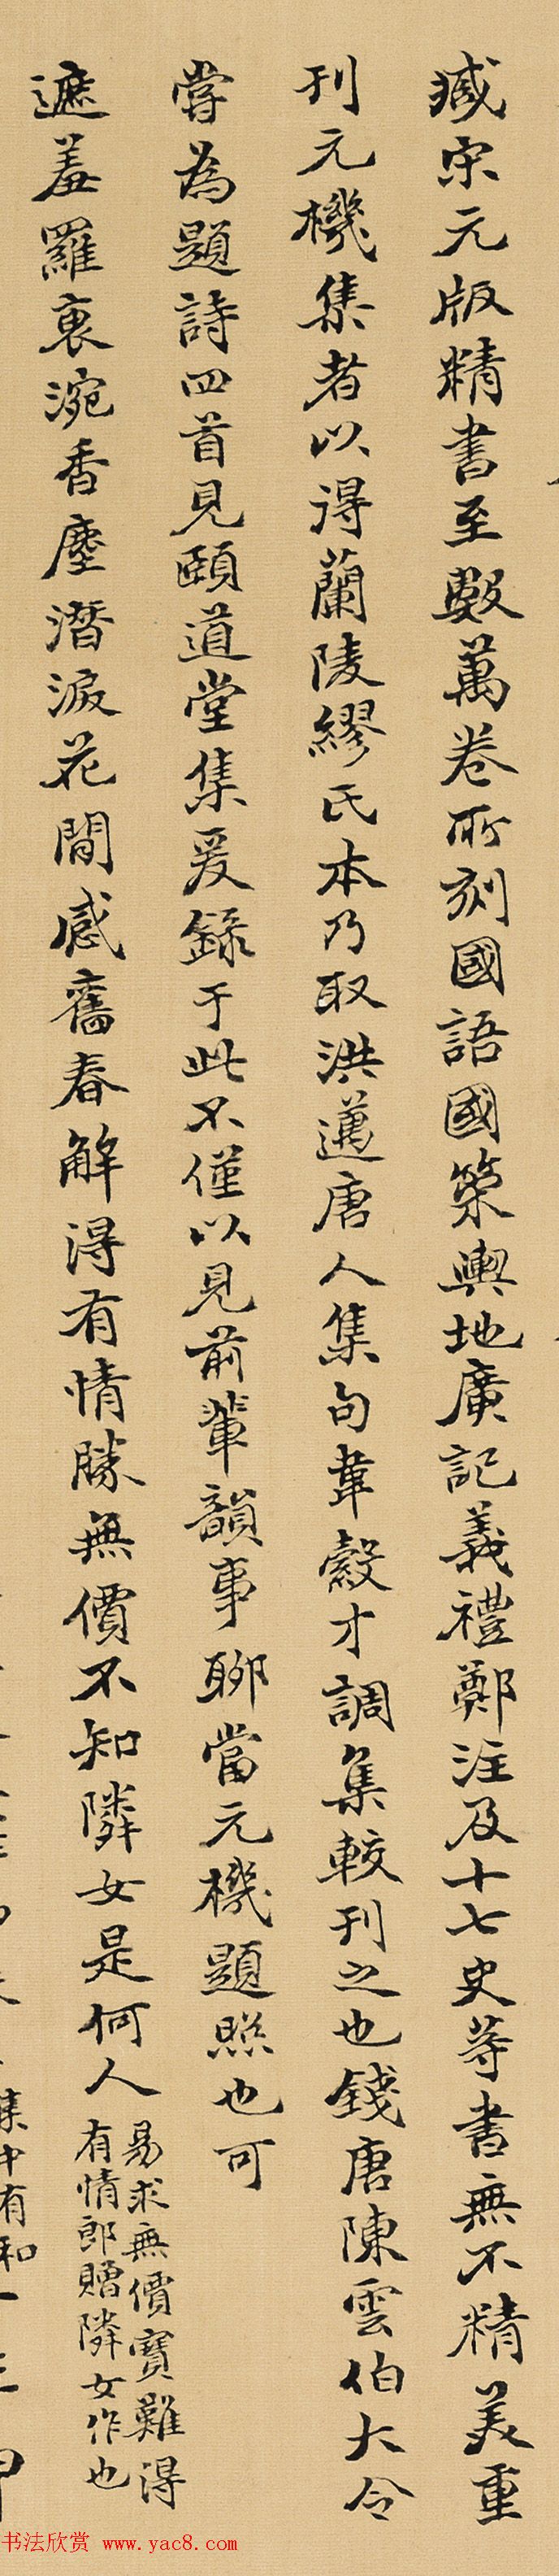 臧宋元版精書至數萬卷所刻國語國策輿地廣記義禮鄭注及十七史等書無不精美重
刊元機集者以得蘭陵繆氏本乃取洪邁唐人集句韋縠才調集較刊之也錢唐陳雲伯大令
嘗為題詩四首見頤道堂集爰錄于此不僅以見前輩韻事聊當元機題照也可
遮羞羅裹涴香塵潛淚花間感舊春解得有情勝無價不知隣女是何人
易求無價寶難得
有情郎贈隣女作也
集中有和一
书法欣赏 www.yac8.com